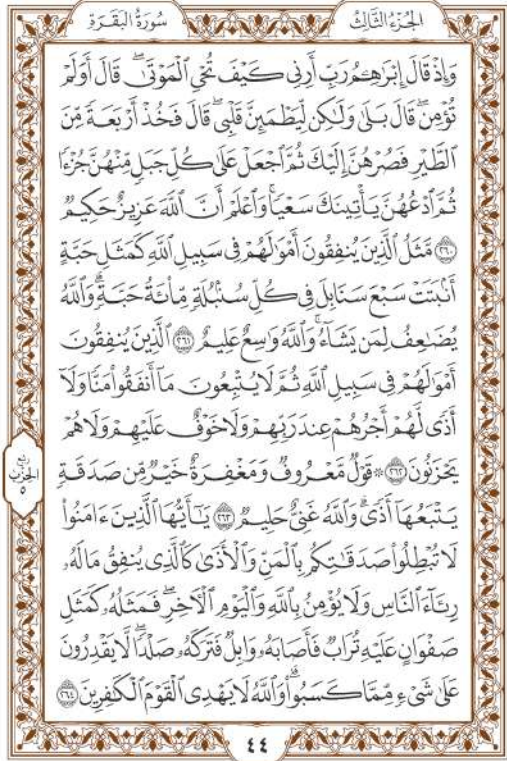 الجُزْءُ الثَّالِثُ
سُورَةُ البَقَرَةِ
وَإِذْ قَالَ إِبْرَٰهِـۧمُ رَبِّ أَرِنِى كَيْفَ تُحْىِ ٱلْمَوْتَىٰۖ قَالَ أَوَلَمْ
تُؤْمِنۖ قَالَ بَلَىٰ وَلَٰكِن لِّيَطْمَئِنَّ قَلْبِىۖ قَالَ فَخُذْ أَرْبَعَةً مِّنَ
ٱلطَّيْرِ فَصُرْهُنَّ إِلَيْكَ ثُمَّ ٱجْعَلْ عَلَىٰ كُلِّ جَبَلٍ مِّنْهُنَّ جُزْءًا
ثُمَّ ٱدْعُهُنَّ يَأْتِينَكَ سَعْيًاۚ وَٱعْلَمْ أَنَّ ٱللَّهَ عَزِيزٌ حَكِيمٌ
٢٦٠ مَّثَلُ ٱلَّذِينَ يُنفِقُونَ أَمْوَٰلَهُمْ فِى سَبِيلِ ٱللَّهِ كَمَثَلِ حَبَّةٍ
أَنۢبَتَتْ سَبْعَ سَنَابِلَ فِى كُلِّ سُنۢبُلَةٍ مِّا۟ئَةُ حَبَّةٍۗ وَٱللَّهُ
يُضَٰعِفُ لِمَن يَشَآءُۚ وَٱللَّهُ وَٰسِعٌ عَلِيمٌ ٢٦١ ٱلَّذِينَ يُنفِقُونَ
أَمْوَٰلَهُمْ فِى سَبِيلِ ٱللَّهِ ثُمَّ لَا يُتْبِعُونَ مَآ أَنفَقُوا۟ مَنًّا وَلَآ
أَذًىۙ لَّهُمْ أَجْرُهُمْ عِندَ رَبِّهِمْ وَلَا خَوْفٌ عَلَيْهِمْ وَلَا هُمْ
يَحْزَنُونَ ٢٦٢ ۞ قَوْلٌ مَّعْرُوفٌ وَمَغْفِرَةٌ خَيْرٌ مِّن صَدَقَةٍ
يَتْبَعُهَآ أَذًىۗ وَٱللَّهُ غَنِىٌّ حَلِيمٌ ٢٦٣ يَٰٓأَيُّهَا ٱلَّذِينَ ءَامَنُوا۟
لَا تُبْطِلُوا۟ صَدَقَٰتِكُم بِٱلْمَنِّ وَٱلْأَذَىٰ كَٱلَّذِى يُنفِقُ مَالَهُۥ
رِئَآءَ ٱلنَّاسِ وَلَا يُؤْمِنُ بِٱللَّهِ وَٱلْيَوْمِ ٱلْءَاخِرِۖ فَمَثَلُهُۥ كَمَثَلِ
صَفْوَانٍ عَلَيْهِ تُرَابٌ فَأَصَابَهُۥ وَابِلٌ فَتَرَكَهُۥ صَلْدًاۖ لَّا يَقْدِرُونَ
عَلَىٰ شَىْءٍ مِّمَّا كَسَبُوا۟ۗ وَٱللَّهُ لَا يَهْدِى ٱلْقَوْمَ ٱلْكَٰفِرِينَ ٢٦٤
ربع
الحزب
٥
٤٤